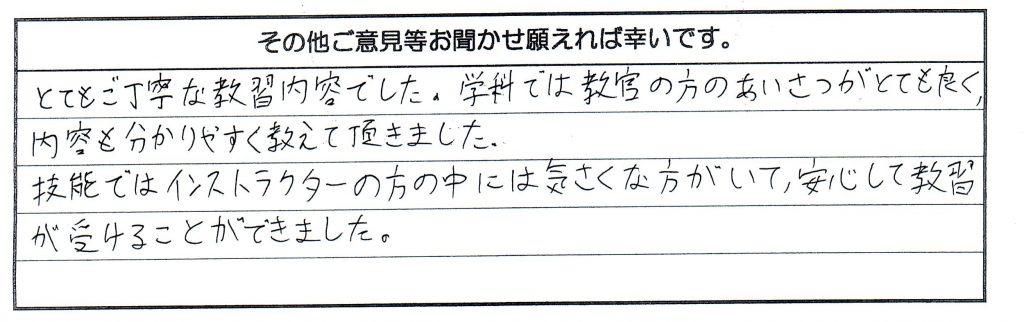 その他ご意見等お聞かせ願えれば幸いです。
とてもご丁寧な教習内容でした。学科では教官の方のあいさつがとても良く,
内容も分かりやすく教えて頂きました.
技能ではインストラクターの方の中には気さくな方がいて,安心して教習
が受けることができました。